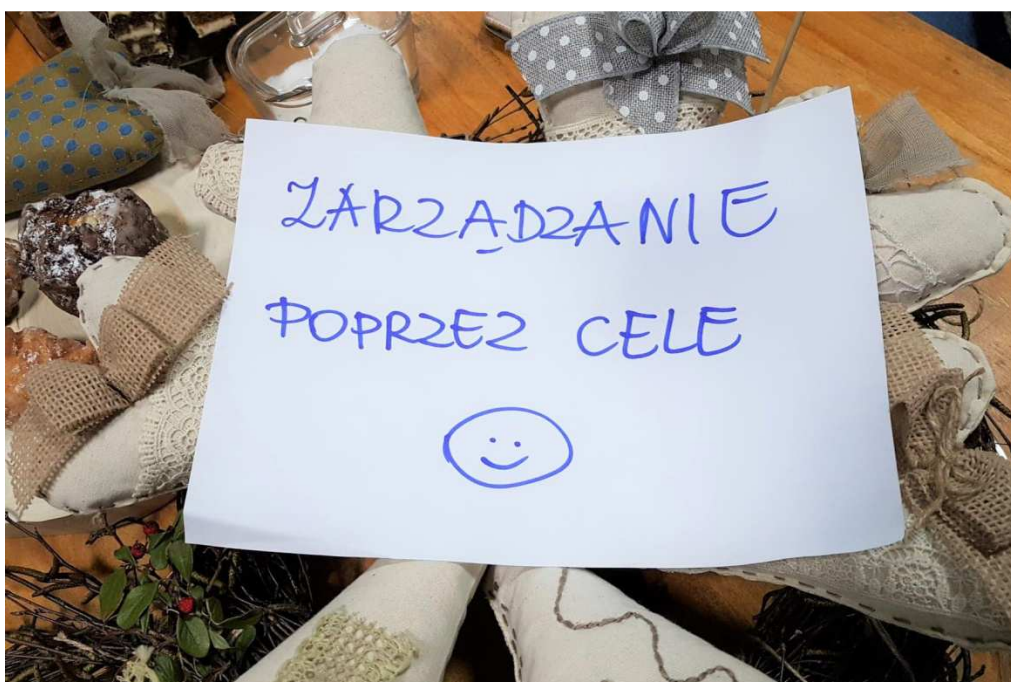 ZARZĄDZANIE
POPRZEZ CELE